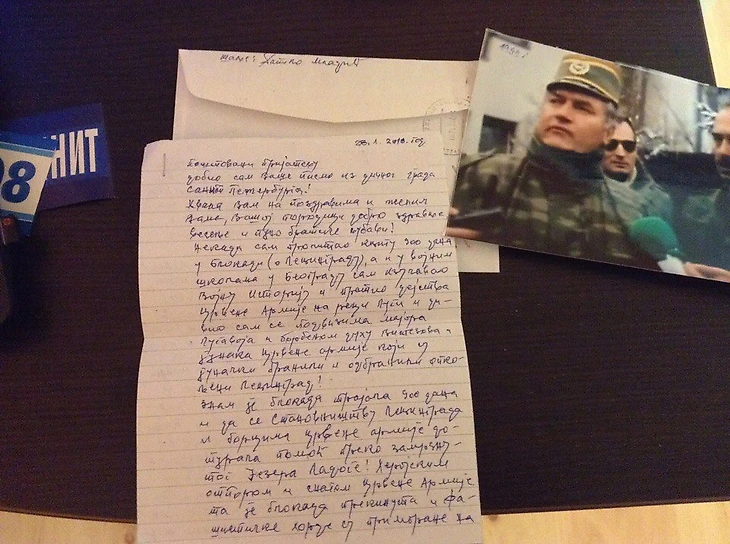 шаље: Ратко Младић
1995г
НИТ
98
28. 1. 2018. год
Поштовани пријатељу
добио сам Ваше писмо из дичног града
Санкт Петербурга!
Хвала Вам на поздравима и желим
Вама, Вашој породици добро здравље
весеље и пуно братске љубави!
Некада сам прочитао књигу 900 дана
у блокади (о Лењинграду), а и у војним
школама у Београду сам изучавао
Војну Историју и пратио дејства
Црвене Армије на реци Луги и ди-
вио сам се подвизима мајора
Пугавоја и борбеном духу Витезова и
јунака Црвене армије који су
јуначки бранили и одбранили
Лењинград!
Знам је блокада трајала 900 дана
и да се становништву Лењинграда
и борцима црвене армије до-
турала помоћ преко замрзну-
тог Језера Ладоге! Херојским
отпором и снагом Црвене Армије
та је блокада прекинута и фа-
шистичке хорде су приморане на